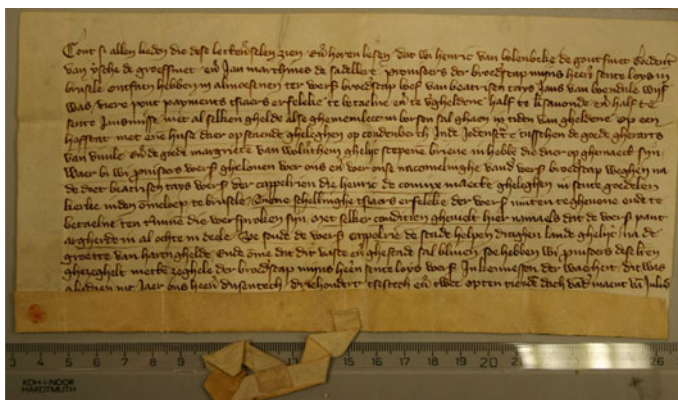 Cont si allen lieden die dese letteren selen zien en̄ horen lesen dat wi henric van bolenbeke de goutsmet
van yssche de groefsmet en̄ Jan marthijns de sadelere provisers der broederscap mijns heeren sente loys in
brusele ontfaen hebben in almoesenen ter voers broederscap boef van beatrisen tays Jans van boendale wijf
was viere pont payments tsiaers erfelike te betaelne en̄ te vergheldene half te kersavonde en̄ half te
sente Jansmisse met alselken ghelde alse ghemeinlec in borsen sal ghaen in tiden van gheldene op een
hofstat met enen huse daer opstaende gheleghen op coudenberch tusschen de goede gherarts
van en̄ de goede margriete van ghelijc scepene brieve in hebben die daer op ghemaect sijn
Waer bi wi provisers voers gheloven voer ons en̄ voer onse nacomelinghe vand voers broederscap weghen na
de doet beatrisen tays voers der cappelrien die henric de maecte gheleghen in sente goedelen
kerke inden ommeloep te brusele schellinghe tsiaers erfelike der voers te ghevene ende te
betaelne ten termine die voersproken sijn Met selker condicien ghevielt hier namaels dat de voers pant
argherde in al ochte in deele Soe soude de voers cappelrie de scade helpen draghen lande ghelijc na de
groette van haren ghelde Ende omme dat dit vaste en̄ ghestade sal bliven soe hebben wi provisers dese letteren
ghezeghelt metten zeghele der broederscap mijns heeren sente loys voers In kennessen der waerheit dit was
int Jaer ons heeren dusentech drihondert tsestech en̄ twee opten tienden dach vand maent van Julio
0 3 4 5 6 7 8 9 10 13 14 15 16 17 18 19 20 21 26
KOH-I-NOOR
HARDTMUTH